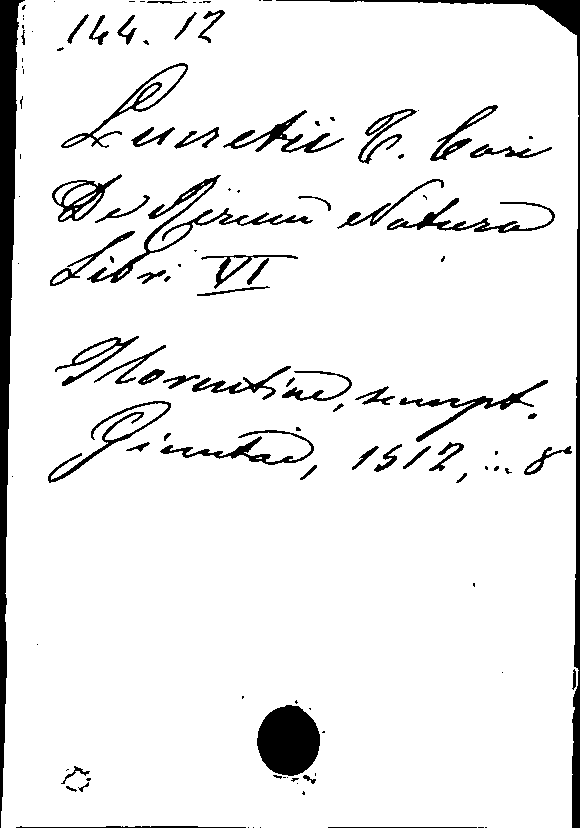 144. 12
Lucretii T. Cari
De Rerum Natura
Libri VI
Florentiae, sumpt.
Giuntae, 1512, in 8°